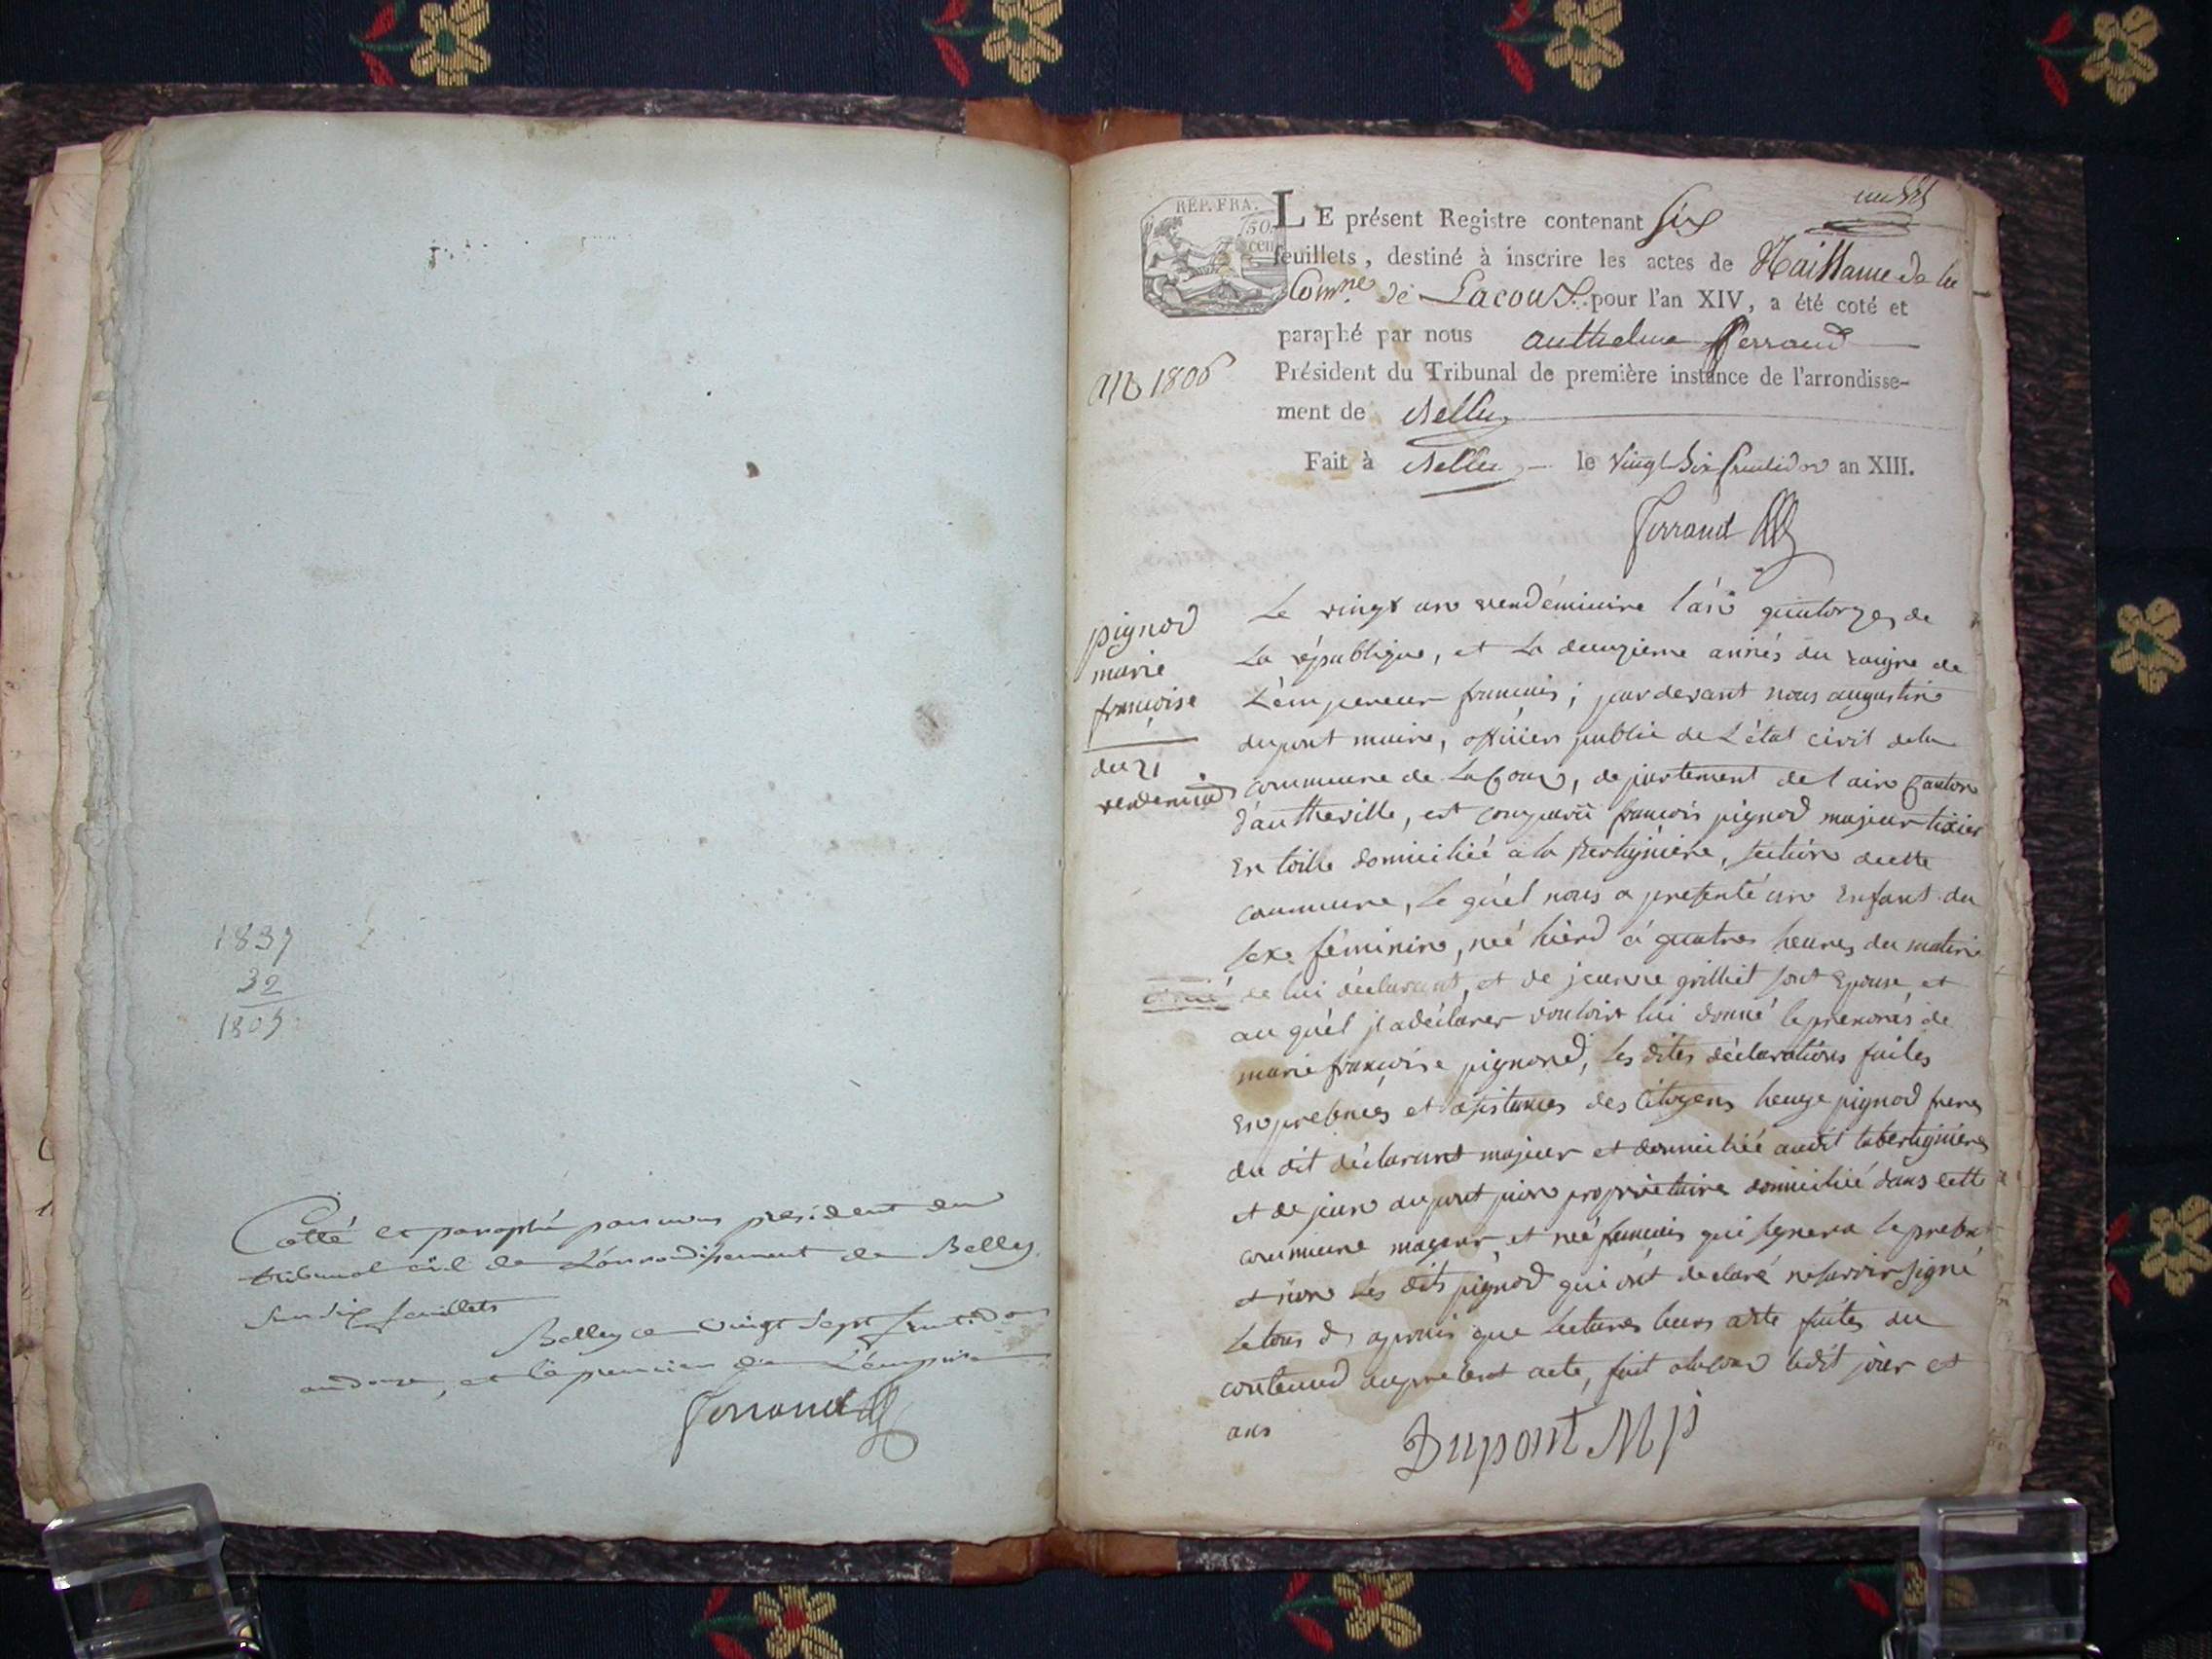 1837
32
1805
Cotté et paraphé par nous président du
tribunal civil de L'arrondissement de Belley
Sur Six feuillets
Belley ce vingt Sept fructidor
an douze, et le premier de L'empire
Ferraud
REP. FRA.
50
cen
LE présent Registre contenant Six
feuillets, destiné à inscrire les actes de Naissance de la
Comne de Lacoux pour l'an XIV, a été coté et
paraphé par nous anthelme ferraud
Président du Tribunal de première instance de l'arrondisse-
ment de Belley
Fait à Belley le Vingt Six fructidor an XIII.
Ferraud
an 1806
pignod
marie
françoise
du 21
vendemiaire
Le vingt un vendémiaire l'an quatorzes de
La république, et La deuzieme annés du raigne de
L'empereur francais; par devant nous augustin
dupont maire, officier public de L'état civil dela
commune de Lacoux, departement de l'ain Canton
d'autheville, est comparû francois pignod majeur tixier
En toille domiciliéé a la Bertiginière, section decette
commune, Le quèl nous a presenté un Enfant du
Sexe féminin, neé hierd à quatres heures du matin
de lui déclarant, et de jeanne grilliet sont Epouse, et
au quèl jl a déclarer vouloir lui donné le prenoms de
marie françoise pignond, les dites déclarations faites
En presences et asistances des Citoyens pignod freres
du dit déclarant majeur et domiciliéé audit labertiginieres
et de jean dupont proprietaire domiciliéé dans cette
commune mageur, et neé francais qui Signera le present
et non Les dits pignod qui ont declaré ne savoir signé
Le tous d apprais que Lectures leurs aété faites du
contenud au present acte, fait alacoux ledit jour et
ans
Dupont